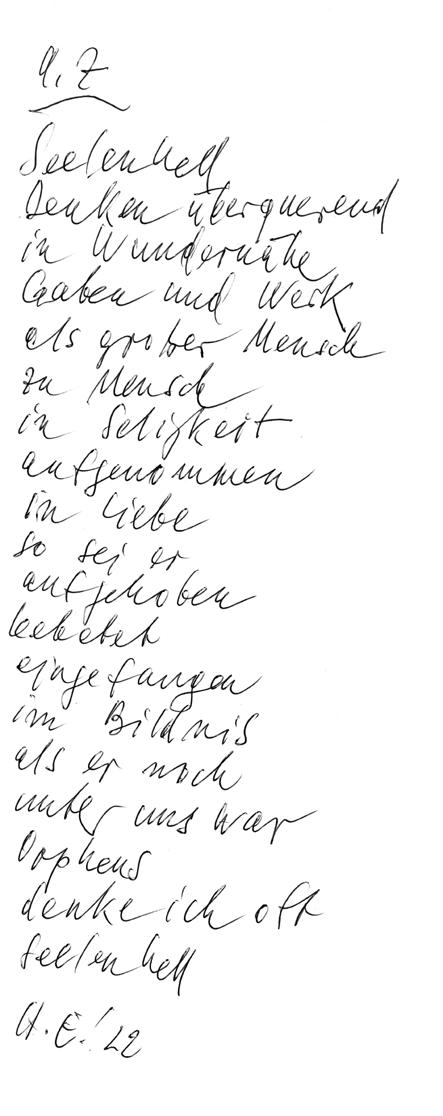 A. Z
Seelenhell
Denken überquerend
in Wundernähe
Gaaben und Werk
als großer Mensch
zu Mensch
in Seligkeit
aufgenommen
in Liebe
so sei er
aufgehoben
bebetet
eingefangen
im Bildnis
als er noch
unter uns war
Orpheus
denke ich oft
seelenhell
A. E.! 22